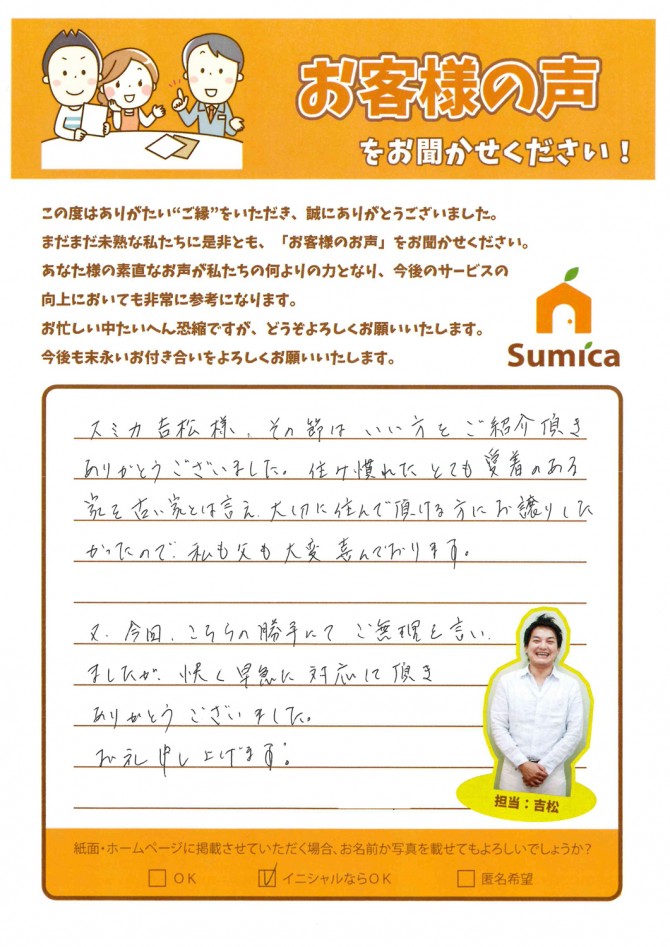 お客様の声
をお聞かせください！
この度はありがたい“ご縁”をいただき、誠にありがとうございました。
まだまだ未熟な私たちに是非とも、「お客様のお声」をお聞かせください。
あなた様の素直なお声が私たちの何よりの力となり、今後のサービスの
向上においても非常に参考になります。
お忙しい中たいへん恐縮ですが、どうぞよろしくお願いいたします。
今後も末永いお付き合いをよろしくお願いいたします。
Sumica
スミカ 吉松様、その節は いい方を ご紹介頂き
ありがとうございました。住み慣れた とても愛着のある
家を古い家とは言え、大切に住んで頂ける方にお譲りした
かったので、私も父も大変喜んでおります。
又、今回、こちらの勝手にて ご無理を言い、
ましたが、快く早急に対応して頂き
ありがとうございました。
お礼申し上げます。
担当：吉松
紙面・ホームページに掲載させていただく場合、お名前か写真を載せてもよろしいでしょうか？
OK
イニシャルならOK
匿名希望